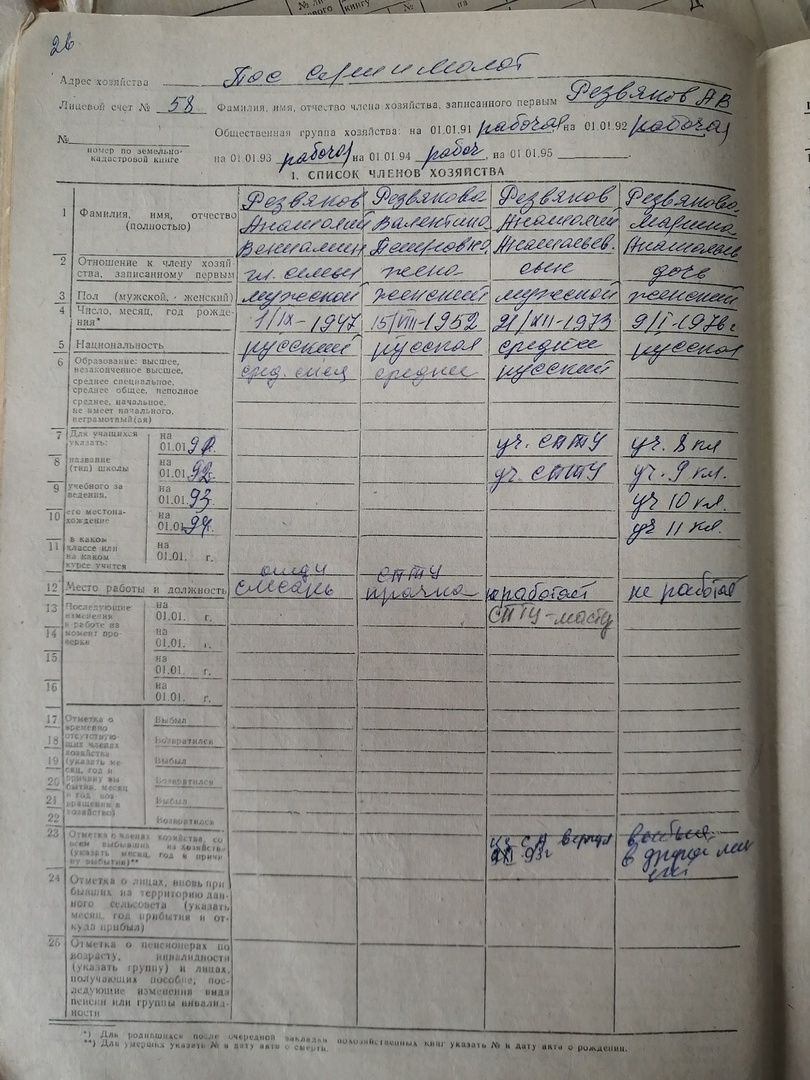 26
Адрес хозяйства Пос Серп и Молот
Лицевой счет № 58 Фамилия, имя, отчество члена хозяйства, записанного первым Резвяков АВ
Общественная группа хозяйства: на 01.01.91 рабочая на 01.01.92 рабочая
№
номер по земельно-
кадастровой книге
на 01.01.93 рабочая на 01.01.94 рабоч, на 01.01.95
I. СПИСОК ЧЛЕНОВ ХОЗЯЙСТВА
1 Фамилия, имя, отчество (полностью)
Резвяков Анатолий Вениамин
Резвякова Валентина Петровна
Резвяков Анатолий Анатольев.
Резвякова Марина Анатольев
2 Отношение к члену хозяй-
ства, записанному первым гл. семьи жена сын дочь
3 Пол (мужской, женский) мужской женский мужской женский
4 Число, месяц, год рожде-
ния* 1/IX-1947 15/VIII-1952 21/XII-1973 9/I-1976г
5 Национальность русский русская среднее русская
6 Образование: высшее, сред. спец среднее русский
незаконченное высшее,
среднее специальное,
среднее общее, неполное
среднее, начальное,
не имеет начального,
неграмотный(ая)
7 Для учащихся
указать: на
01.01.91г. уч. СПТУ уч. 8 кл
8 название
(тип) школы на
01.01.92. уч. СПТУ уч. 9 кл.
9 учебного за
ведения, на
01.01.93. уч 10 кл.
10 его местона-
хождение на
01.01.94г. уч 11 кл.
11 в каком
классе или
на каком
курсе учится на
01.01. г.
12 Место работы и должность слесарь СПТУ прачка не работает не работает
13 Последующие
изменения
в работе на
момент про-
верки на
01.01. г. СПТУ-
14 на
01.01. г.
15 на
01.01. г.
16 на
01.01. г.
17 Отметка о
временно
отсутствую-
щих членах
хозяйства
(указать ме-
сяц, год и
причину вы
бытия, месяц
и год воз-
вращения в
хозяйство) Выбыл
18 Возвратился
19 Выбыл
20 Возвратился
21 Выбыл
22 Возвратился
23 Отметка о членах хозяйства, со
всем выбывших из хозяйства
(указать месяц, год и причи
ну выбытия)** из СА вернул
XI. 93г
выбыла
в другой
24 Отметка о лицах, вновь при
бывших на территорию дан-
ного сельсовета (указать
месяц, год прибытия и от-
куда прибыл)
25 Отметка о пенсионерах по
возрасту, инвалидности
(указать группу) и лицах,
получающих пособие, пос-
ледующие изменения вида
пенсии или группы инвалид-
ности
*) Для родившихся после очередной закладки похозяйственных книг указать № и дату акта о рождении.
**) Для умерших указать № и дату акта о смерти.